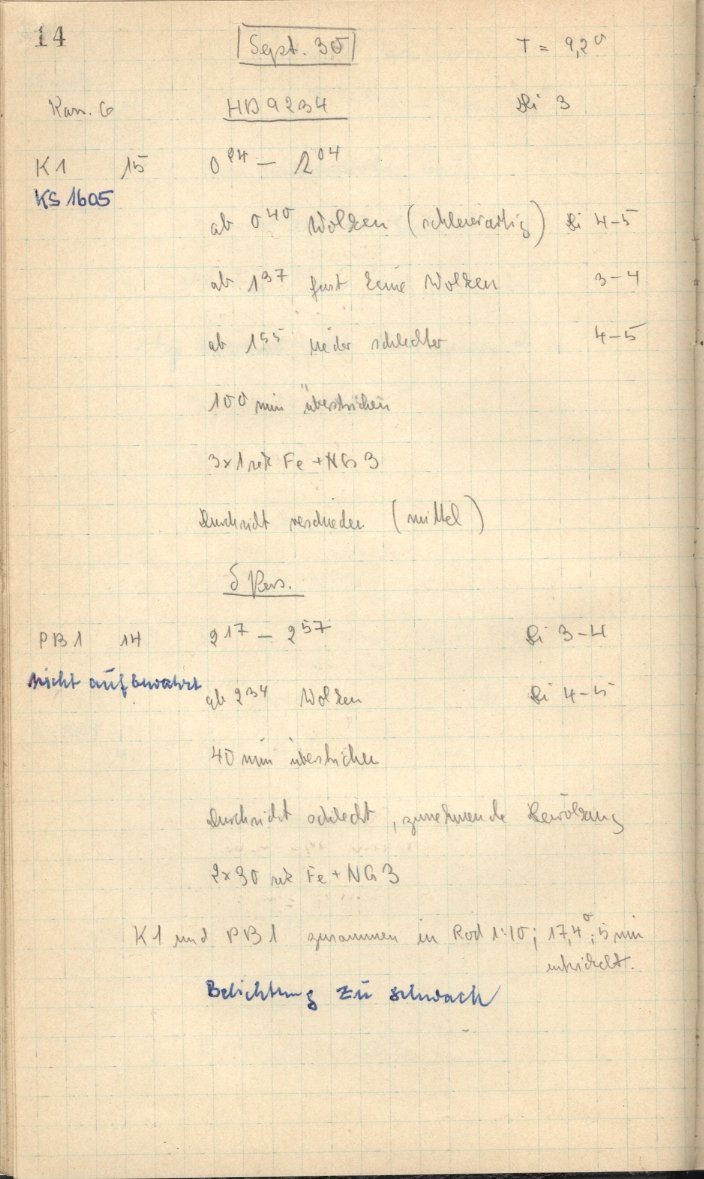 14 Sept. 30 T = 9,2°
Kas. 6 HD 9234 Bi 3
K1 15 0 24 – 2 04
KS 1605
ab 0 40 Wolken (schleierartig) Bi 4–5
ab 1 37 fast keine Wolken 3–4
ab 1 55 wieder schlechter 4–5
100 min überstrichen
3x1 sek Fe + NG 3
Durchsicht verschieden (mittel)
δ Pers.
PB1 14 2 17 – 2 57 Bi 3–4
nicht aufbewahrt
ab 2 34 Wolken Bi 4–5
40 min überstrichen
Durchsicht schlecht, zunehmende Bewölkung
2x30 sek Fe + NG 3
K1 und PB1 zusammen in Rod 1:10; 17,4°; 5 min
entwickelt.
Belichtung zu schwach